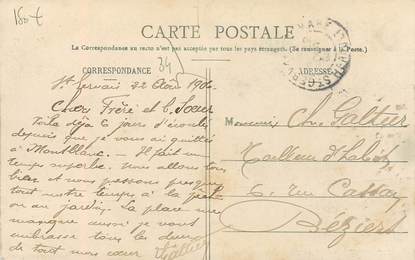 150 f
CARTE POSTALE
La Correspondance au recto n'est pas acceptée par tous les pays étrangers. (Se renseigner à la Poste.)
34
CORRESPONDANCE
ADRESSE
St Gervais 22 Août 1906
Chers Frère et b. Sœur
Voila déjà 6 jours d'écoulés
depuis que je vous ai quitté
à Montblanc. Il fait un
temps superbe. Nous allons tous
bien et nous passons presque
tout notre temps à la
ou au jardin. La place me
manque aussi je vous
embrasse tous les deux
de tout mon cœur Galtier
Monsieur Ch. Galtier
Tailleur d'habits
6. rue Cassan
Béziers